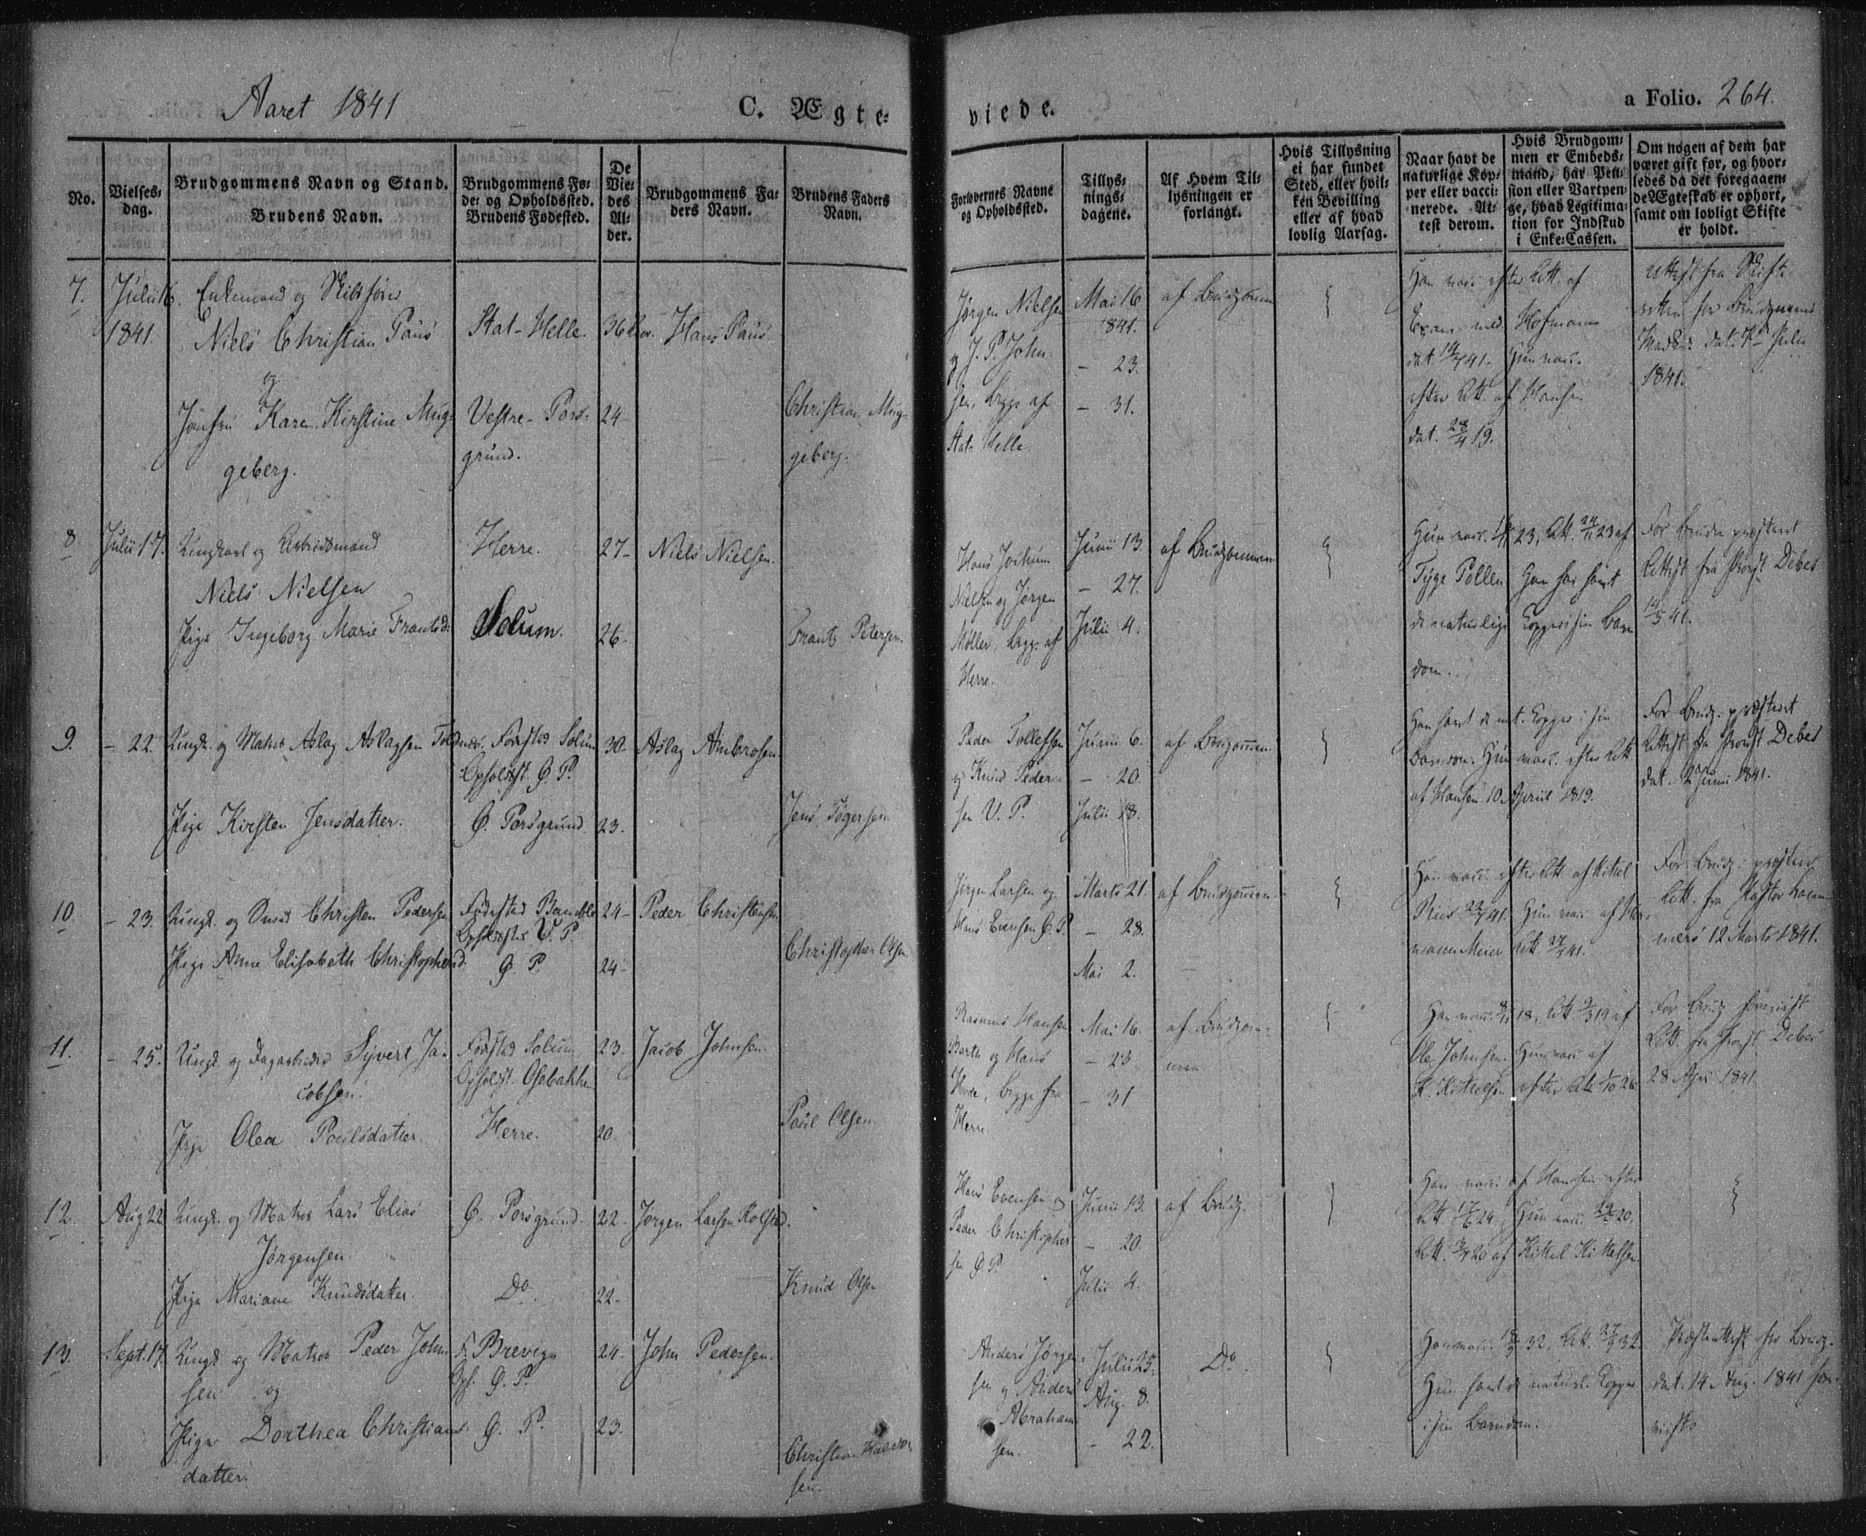 Aaret 1841
C. Ægte-
viede.
a Folio. 264.
No.
Vielses-
dag.
Brudgommens Navn og Stand.
Brudens Navn.
Brudgommens Fø-
de- og Opholdssted.
Brudens Fødested.
De
Vie-
des
Al-
der.
Brudgommens Fa-
ders Navn.
Brudens Faders
Navn.
Forlovernes Navne
og Opholdssted.
Tillys-
nings-
dagene.
Af Hvem Til-
lysningen er
forlangt.
Hvis Tillysning
ei har fundet
Sted, eller hvil-
ken Bevilling
eller af hvad
lovlig Aarsag.
Naar havt de
naturlige Kop-
per eller vacci-
nerede. At-
test derom.
Hvis Brudgom-
men er Embeds-
mand, har Pen-
sion eller Vartpen-
ge, hvad Legitima-
tion for Indskud
i Enke-Cassen.
Om nogen af dem har
været gift før, og hvor-
ledes da det foregaaen-
de Ægteskab er ophørt,
samt om lovligt Skifte
er holdt.
7.
Julii 16.
1841.
Enkemand og Skibsfører
Niels Christian Paus
og
Jomfru Karen Kirstine Mug-
geberg.
Stat-Helle
Vestre-Pors-
grund.
36
24
Hans Paus
Christian Mug-
geberg.
Jørgen Nielsen
og J. P. John-
sen, begge af
Stat-Helle
Mai 16
1841.
- 23.
- 31.
af Brudgommen
Han vacc. efter Att. af
Exam. med. Hofmann
Hun vacc.
efter Att. af Hansen
dat. 28/4 19.
Attest fra Skifte-
1841.
8.
Julii 17.
Ungkarl og Arbeidsmand
Niels Nielsen
Pige Ingeborg Marie Frantsd:
Herre.
Solum.
27-
26-
Niels Nielsen.
Frants Petersen
Hans Jochum
Nielsen og Jørgen
Møller, begge af
Herre.
Junii 13.
- 27.
Julii 4.
af Brudgommen
Tyge Pollen Han har havt
de naturlige Kopper i sin Barn-
dom.
For Bruden præsteret
Attest fra Provst Debes
9.
- 22.
Ungk. og Matros Aslag Aslagsen Toldnes
Pige Kirsten Jensdatter.
Fødested Solum
Opholdst. Ø. P.
Ø. Porsgrund.
30.
23.
Aslag Ambrosen
Jens Jøgersen
Peder Tollefsen
og Knud Peder-
sen V. P.
Junii 6.
- 20.
Julii 18.
af Brudgommen.
Han havt de nat. Kopper i sin
Barndom. Hun vacc. efter Att.
af Hansen 10. April 1819.
For Brudg. præsteret
Attest fra Provst Debes
dat. 2 Juni 1841.
10.
- 23.
Ungk. og Smed Christen Pedersen
Pige Anne Elisabeth Christophersd.
Fødested Bamble
Opholdssted V. P.
Ø P.
24-
24-
Peder Christensen
Christopher Olsen
Jørgen Larsen og
Hans Evensen Ø P
Marts 21.
- 28.
Mai 2.
af Brudgommen.
Han vacc. efter Att. af Kittel
Hun vacc. af Her-
mann Meier
For Brudg. præsteret
Att. fra Pastor
12 Marts 1841.
11.
- 25.
Ungk. og Dagarbeider Syvert Ja-
cobsen.
Pige Olea Poulsdatter.
Fødested Solum
Opholdst. Osebakken
Herre.
23.
20.
Jacob Johnsen.
Poul Olsen.
Rasmus Hansen
Barta og Hans
begge fra
Herre.
Mai 16.
- 23
- 31
af Brudgom-
men
Ole Johnsen. Hun vacc. af
K. Kittelsen efter Att.
For Brudg. foreviist
Att. fra Provst Debes
28 Apr. 1841.
12.
Aug 22
Ungk. og Matros Lars Elias
Jørgensen
Pige Mariane Knudsdatter.
Ø. Porsgrund.
Do.
22.
22.
Jørgen Larsen Rolstad.
Knud Olsen
Hans Evensen og
Peder Christopher-
sen Ø P.
Junii 13.
- 20.
Julii 4.
af Brudg.
Han vacc. af Hansen efter
Hun vacc.
af Kittel Kittelsen.
13.
Sept. 17.
Ungk. og Matros Peder John-
sen og
Pige Dorthea Christians-
datter.
F. Brevig
Oph. Ø. P.
Ø. P.
24.
23.
John Pedersen.
Christian
sen.
Anders Jørgen-
sen og Anders
Abraham-
sen.
Julii 25.
Aug. 8.
- 22.
Do.
Hun havt de naturl. Kopper
i sin Barndom.
Præsteattest for Brudg.
dat. 14 Aug. 1841